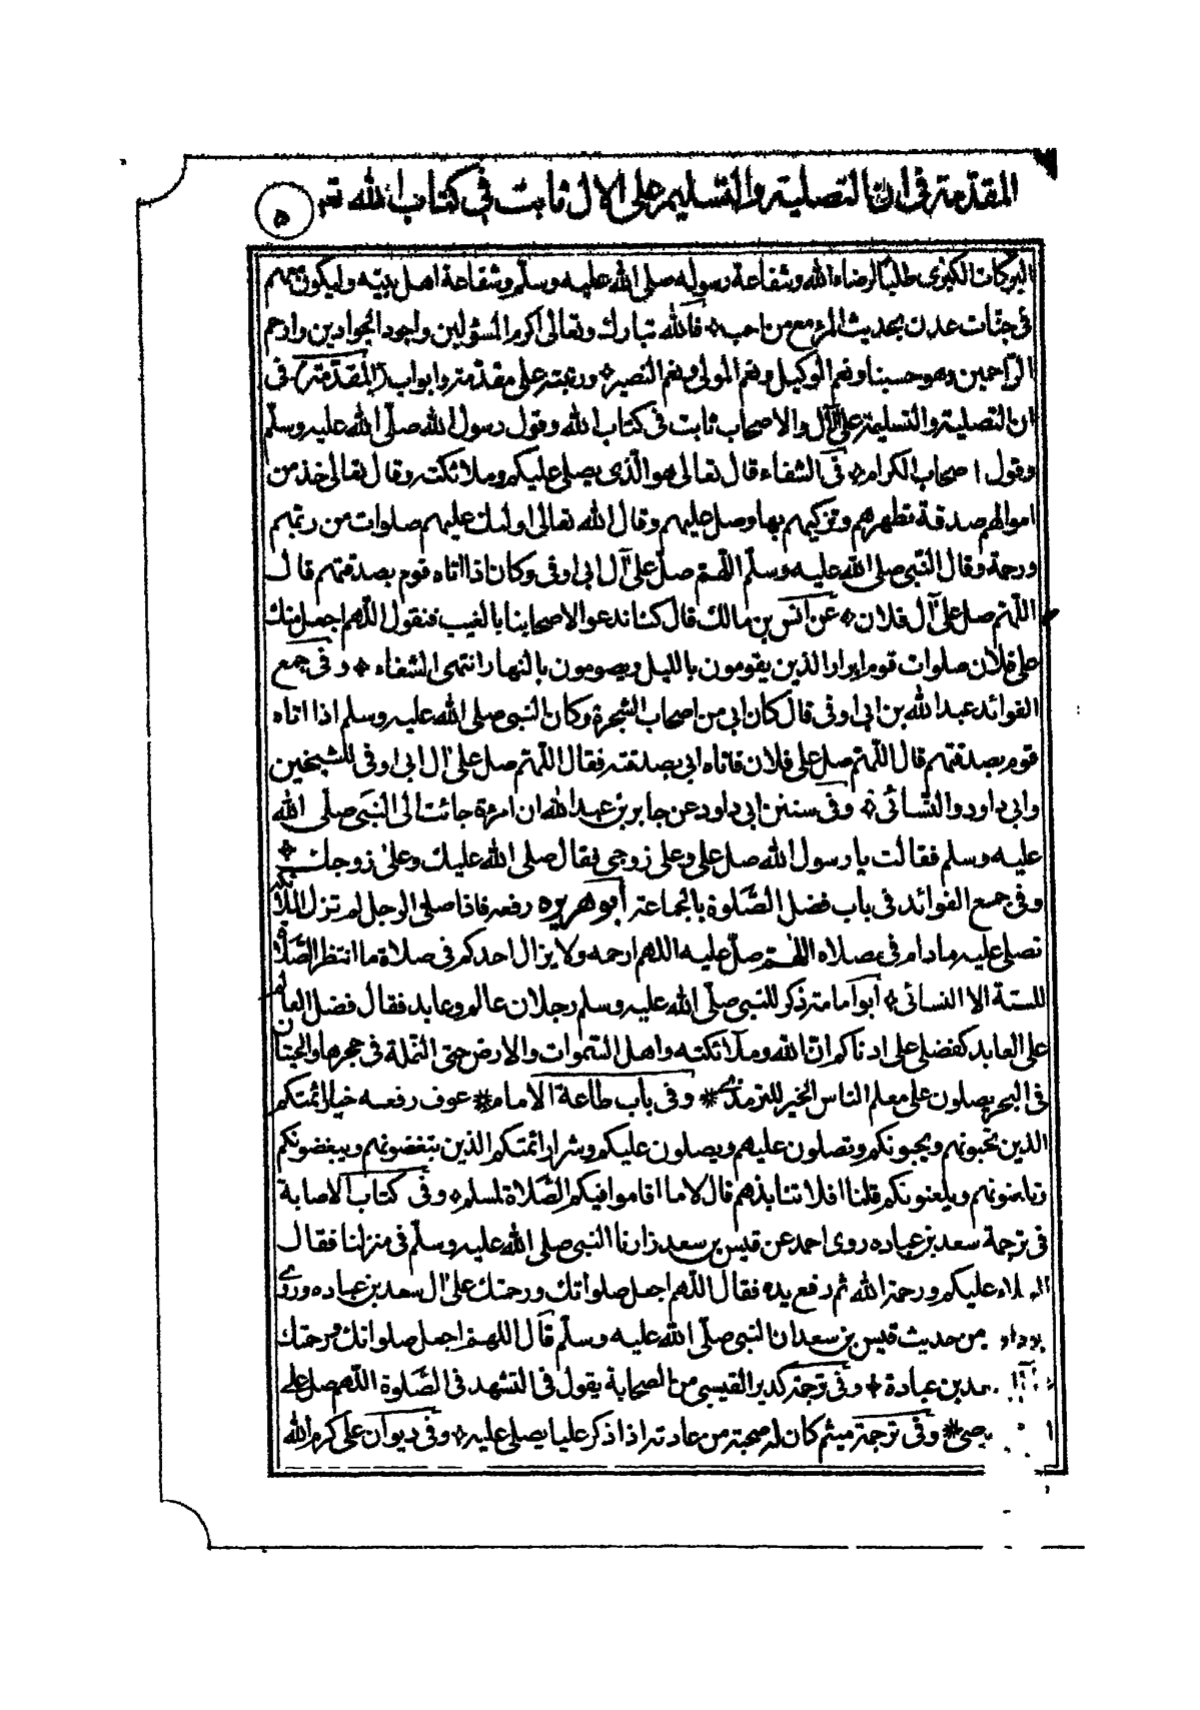 المقدمة في ان التصلية والتسليم على الآل ثابت في كتاب الله تع
٥
البركات الكبرى طلبًا لرضاء الله وشفاعة رسوله صلى الله عليه وسلم وشفاعة اهل بيته وليكون معهم
فى جنّات عدن بحديث المرء مع من احب ۞ فالله تبارك وتعالى اكرم المسؤلين واجود الجوادين وارحم
الرّاحمين وهو حسبنا ونعم الوكيل ونعم المولى ونعم النصير ۞ ورتبته على مقدمة وابواب (المقدّمة) فى
ان التصلية والتسليمة على الآل والاصحاب ثابت فى كتاب الله وقول رسول الله صلّى الله عليه وسلّم
وقول اصحاب الكرام ۞ فى الشفاء قال تعالى هو الّذى يصلى عليكم وملائكته وقال تعالى خذ من
اموالهم صدقة تطهرهم وتزكيهم بها وصل عليهم وقال الله تعالى اولئك عليهم صلوات من ربّهم
ورحمة وقال النّبى صلى الله عليه وسلّم اللّهمّ صلّ على آل ابى اوفى وكان اذا اتاه قوم بصدقتهم قال
اللّهمّ صل على آل فلان ۞ عن انس بن مالك قال كنا ندعو لاصحابنا بالغيب فنقول اللّهم اجعل منك
على فلان صلوات قوم ابرار الذين يقومون بالليل ويصومون بالنهار انتهى الشفاء ۞ وفى جمع
الفوائد عبد الله بن ابى اوفى قال كان ابى من اصحاب الشجرة وكان النبى صلى الله عليه وسلم اذا اتاه
قوم بصدقتهم قال اللّهمّ صل على فلان فاتاه ابى بصدقته فقال اللّهمّ صل على آل ابى اوفى للشيخين
وابى داود والنّسائى ۞ وفى سنن ابى داود عن جابر بن عبد الله ان امرءة جائت الى النّبى صلّى الله
عليه وسلم فقالت يا رسول الله صل على وعلى زوجى فقال صلى الله عليك وعلى زوجك ۞
وفى جمع الفوائد فى باب فضل الصّلوة بالجماعة ابو هريره رفعه فاذا صلى الرجل لم تزل الملائكة
تصلى عليه ما دام فى مصلاه اللّهمّ صلّ عليه اللهم ارحمه ولا يزال احدكم فى صلاة ما انتظر الصّلاة
للستة الا النسائى ۞ ابو امامة ذكر للنبى صلّى الله عليه وسلم رجلان عالم وعابد فقال فضل العالم
على العابد كفضلى على ادناكم انّ الله وملائكته واهل السّموات والارض حتى النّملة فى جحرها والحيتان
فى البحر يصلون على معلم الناس الخير للترمذى ۞ وفى باب طاعة الامام ۞ عوف رفعه خيار ائمتكم
الذين تحبونهم ويحبونكم وتصلون عليهم ويصلون عليكم وشرار ائمتكم الذين تبغضونهم ويبغضونكم
وتلعنونهم ويلعنونكم قلنا افلا ننابذهم قال لا ما اقاموا فيكم الصّلاة لمسلم ۞ وفى كتاب الاصابة
فى ترجمة سعد بن عباده روى احمد عن قيس بن سعد زارنا النبى صلى الله عليه وسلّم فى منزلنا فقال
السلام عليكم ورحمة الله ثم رفع يده فقال اللّهم اجعل صلواتك ورحمتك على آل سعد بن عباده وروى
بوداو من حديث قيس بن سعد ان النبى صلّى الله عليه وسلّم قال اللهمّ اجعل صلواتك ورحمتك
بن عبادة ۞ وفى ترجمة كدير القيسى من الصحابة يقول فى التشهد فى الصّلوة اللّهم صل على
۞ وفى ترجمة ميثم كان له صحبة من عادته اذا ذكر عليا يصلى عليه ۞ وفى ديوان على كرم الله